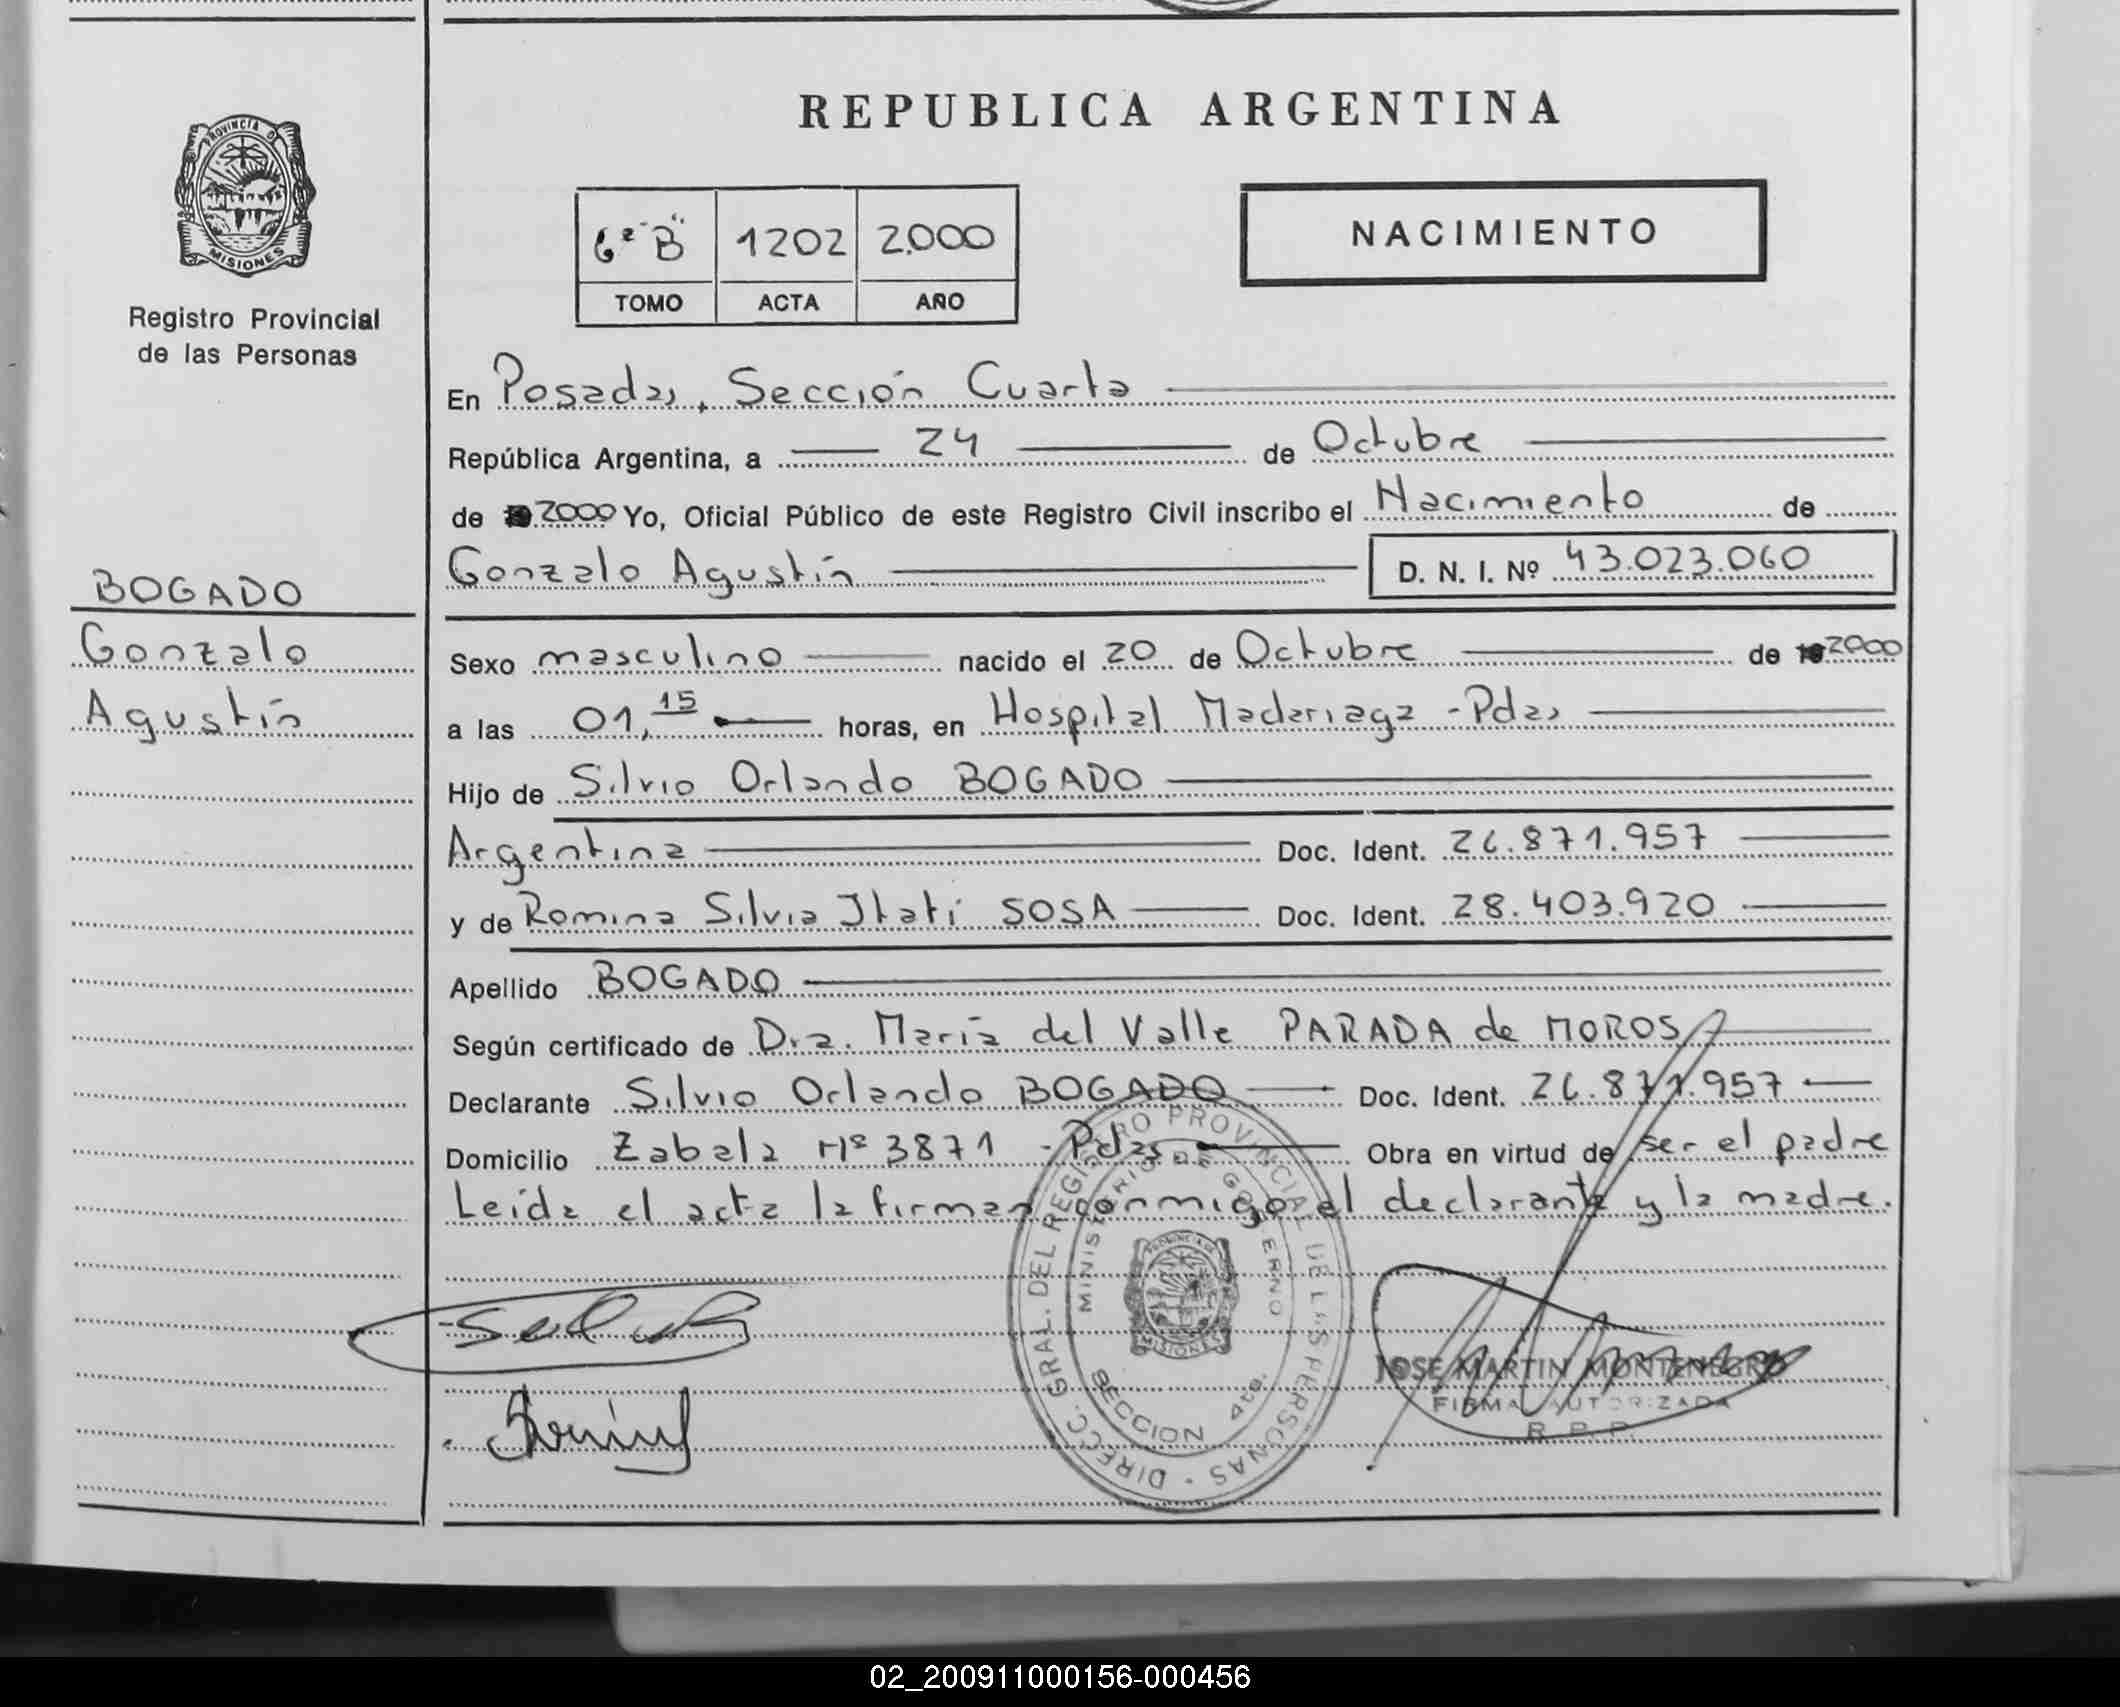 REPUBLICA ARGENTINA
PROVINCIA DE
MISIONES
Registro Provincial
de las Personas
6º "B" 1202 2.000
TOMO ACTA AÑO
NACIMIENTO
En Posadas, Sección Cuarta
República Argentina, a 24 de Octubre
de 2000 Yo, Oficial Público de este Registro Civil inscribo el Nacimiento de
Gonzalo Agustín D. N. I. Nº 43.023.060
BOGADO
Gonzalo
Agustín
Sexo masculino nacido el 20 de Octubre de 2000
a las 01,15 horas, en Hospital Madariaga - Pdas
Hijo de Silvio Orlando BOGADO
Argentina Doc. Ident. 26.871.957
y de Romina Silvia Itatí SOSA Doc. Ident. 28.403.920
Apellido BOGADO
Según certificado de Dra. María del Valle PARADA de MOROS
Declarante Silvio Orlando BOGADO Doc. Ident. 26.871.957
Domicilio Zabala Nº 3871 - Pdas Obra en virtud de ser el padre
Leída el acta la firman conmigo el declarante y la madre.
DIRECC. GRAL. DEL REGISTRO PROVINCIAL DE LAS PERSONAS
MINISTERIO DE GOBIERNO
SECCION 4ta.
JOSE MARTIN MONTENEGRO
FIRMA AUTORIZADA
R. P. P.
02_200911000156-000456